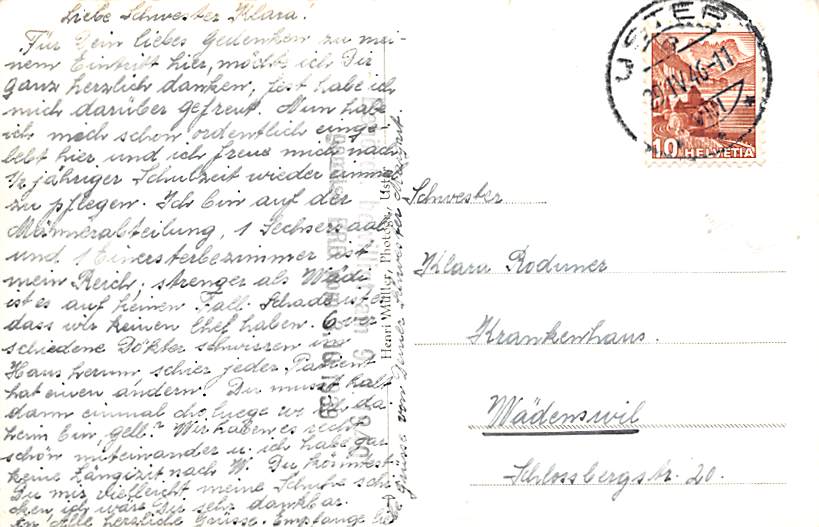 Liebe Schwester Klara!
Für Dein liebes Gedenken zu mei-
nem Eintritt hier, möchte ich Dir
ganz herzlich danken, fest habe ich
mich darüber gefreut. Nun habe
ich mich schon ordentlich einge-
lebt hier und ich freue mich nach
1/2 jähriger Schulzeit wieder einmal
zu pflegen. Ich bin auf der
Männerabteilung, 1 Sechsersaal
und 1 Einersterbezimmer ist
mein Reich, strenger als Wädi
ist es auf keinen Fall. Schade ist es
dass wir keinen Chef haben. 6 ver-
schiedene Dökter schwirren im
Haus herum, schier jeder Patient
hat einen andern. Du musst halt
dann einmal cho luege wo ich da-
heim bin, gell? Wir haben es recht
schön miteinander u. ich habe gar
keine Längizit nach W. Du könntest
Du mir vielleicht meine Schuhe schi-
cken, ich wäre Dir sehr dankbar.
An Alle herzliche Grüsse. Empfange lie-
be Grüsse von Deiner Schwester Margrit.
Henri Müller, Photogr., Uster
USTER
29.IV.46-11
VIII
10 HELVETIA
Schwester
Klara Roduner
Krankenhaus.
Wädenswil
Schlossbergstr. 20.